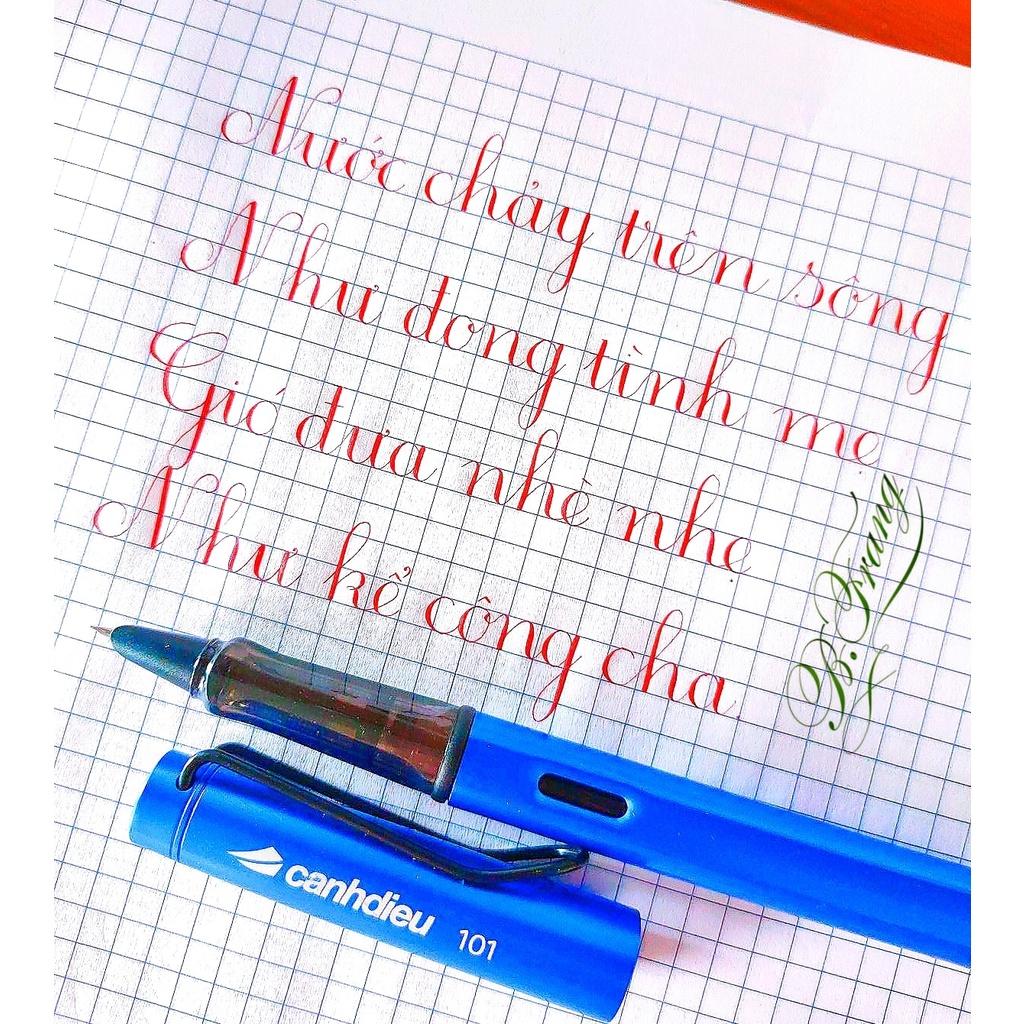 Nước chảy trên sông
Như đong tình mẹ
Gió đưa nhè nhẹ
Như kể công cha.
B. Trang
canhdieu 101